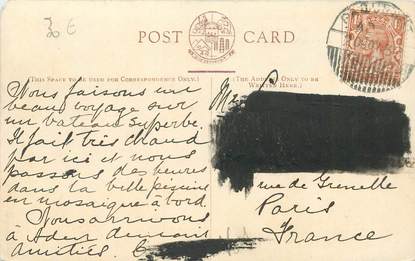 £6
POST CARD
(This Space to be used for Correspondence Only.)
(The Address Only to be Written Here.)
Nous faisons un
beau voyage sur
un bateau superbe.
Il fait très chaud
par ici et nous
passons des heures
dans la belle piscine
en mosaïque à bord.
Nous arrivons
à Aden demain
Amitiés.
rue de Grenelle
Paris
France